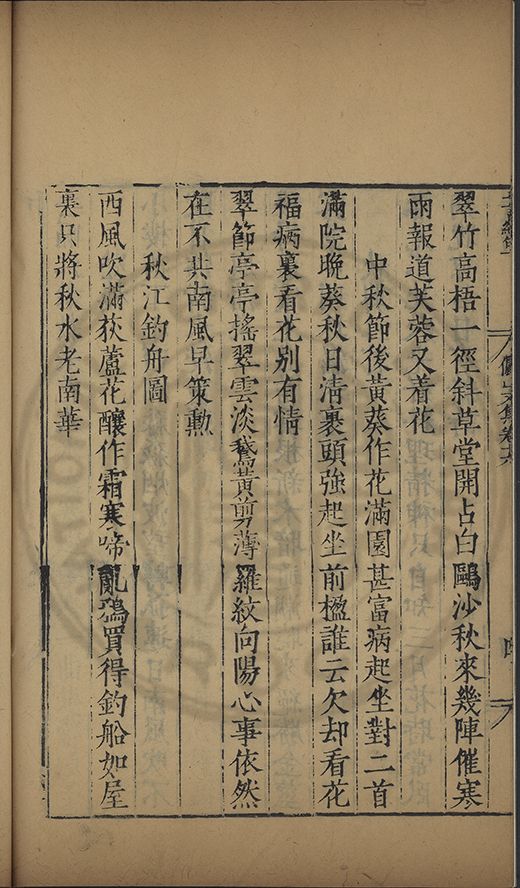 翠竹高梧一徑斜草堂開占白鷗沙秋來幾陣催寒
雨報道芙蓉又着花
中秋節後黃葵作花滿園甚富病起坐對二首
滿院晚葵秋日淸裹頭強起坐前楹誰云欠却看花
福病裏看花别有情
翠節亭亭搖翠雲淡鵞黃剪薄羅紋向陽心事依然
在不共南風早策勳
秋江釣舟圖
西風吹滿荻蘆花釀作霜寒啼亂鴉買得釣船如屋
裏只將秋水老南華